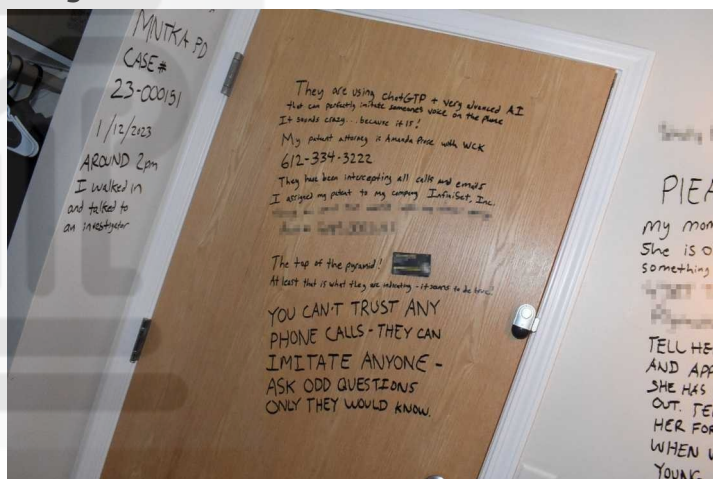 MNTKA PD
CASE#
23-000151
1/12/2023
AROUND 2pm
I walked in
and talked to
an investigator
They are using chatGTP + very advanced A.I
that can perfectly imitate someones voice on the phone
It sounds crazy... because it is!
My patent attorney is Amanda Prose with WCK
612-334-3222
They have been intercepting all calls and emails
I assigned my patent to my company InfiniSet, Inc.
The top of the pyramid!
At least that is what they are indicating - it seems to be true!
YOU CAN'T TRUST ANY
PHONE CALLS - THEY CAN
IMITATE ANYONE -
ASK ODD QUESTIONS
ONLY THEY WOULD KNOW.
my mom
She is
something
TELL HE
AND APP
SHE HAS
OUT. TE
HER FOR
WHEN
YOUNG